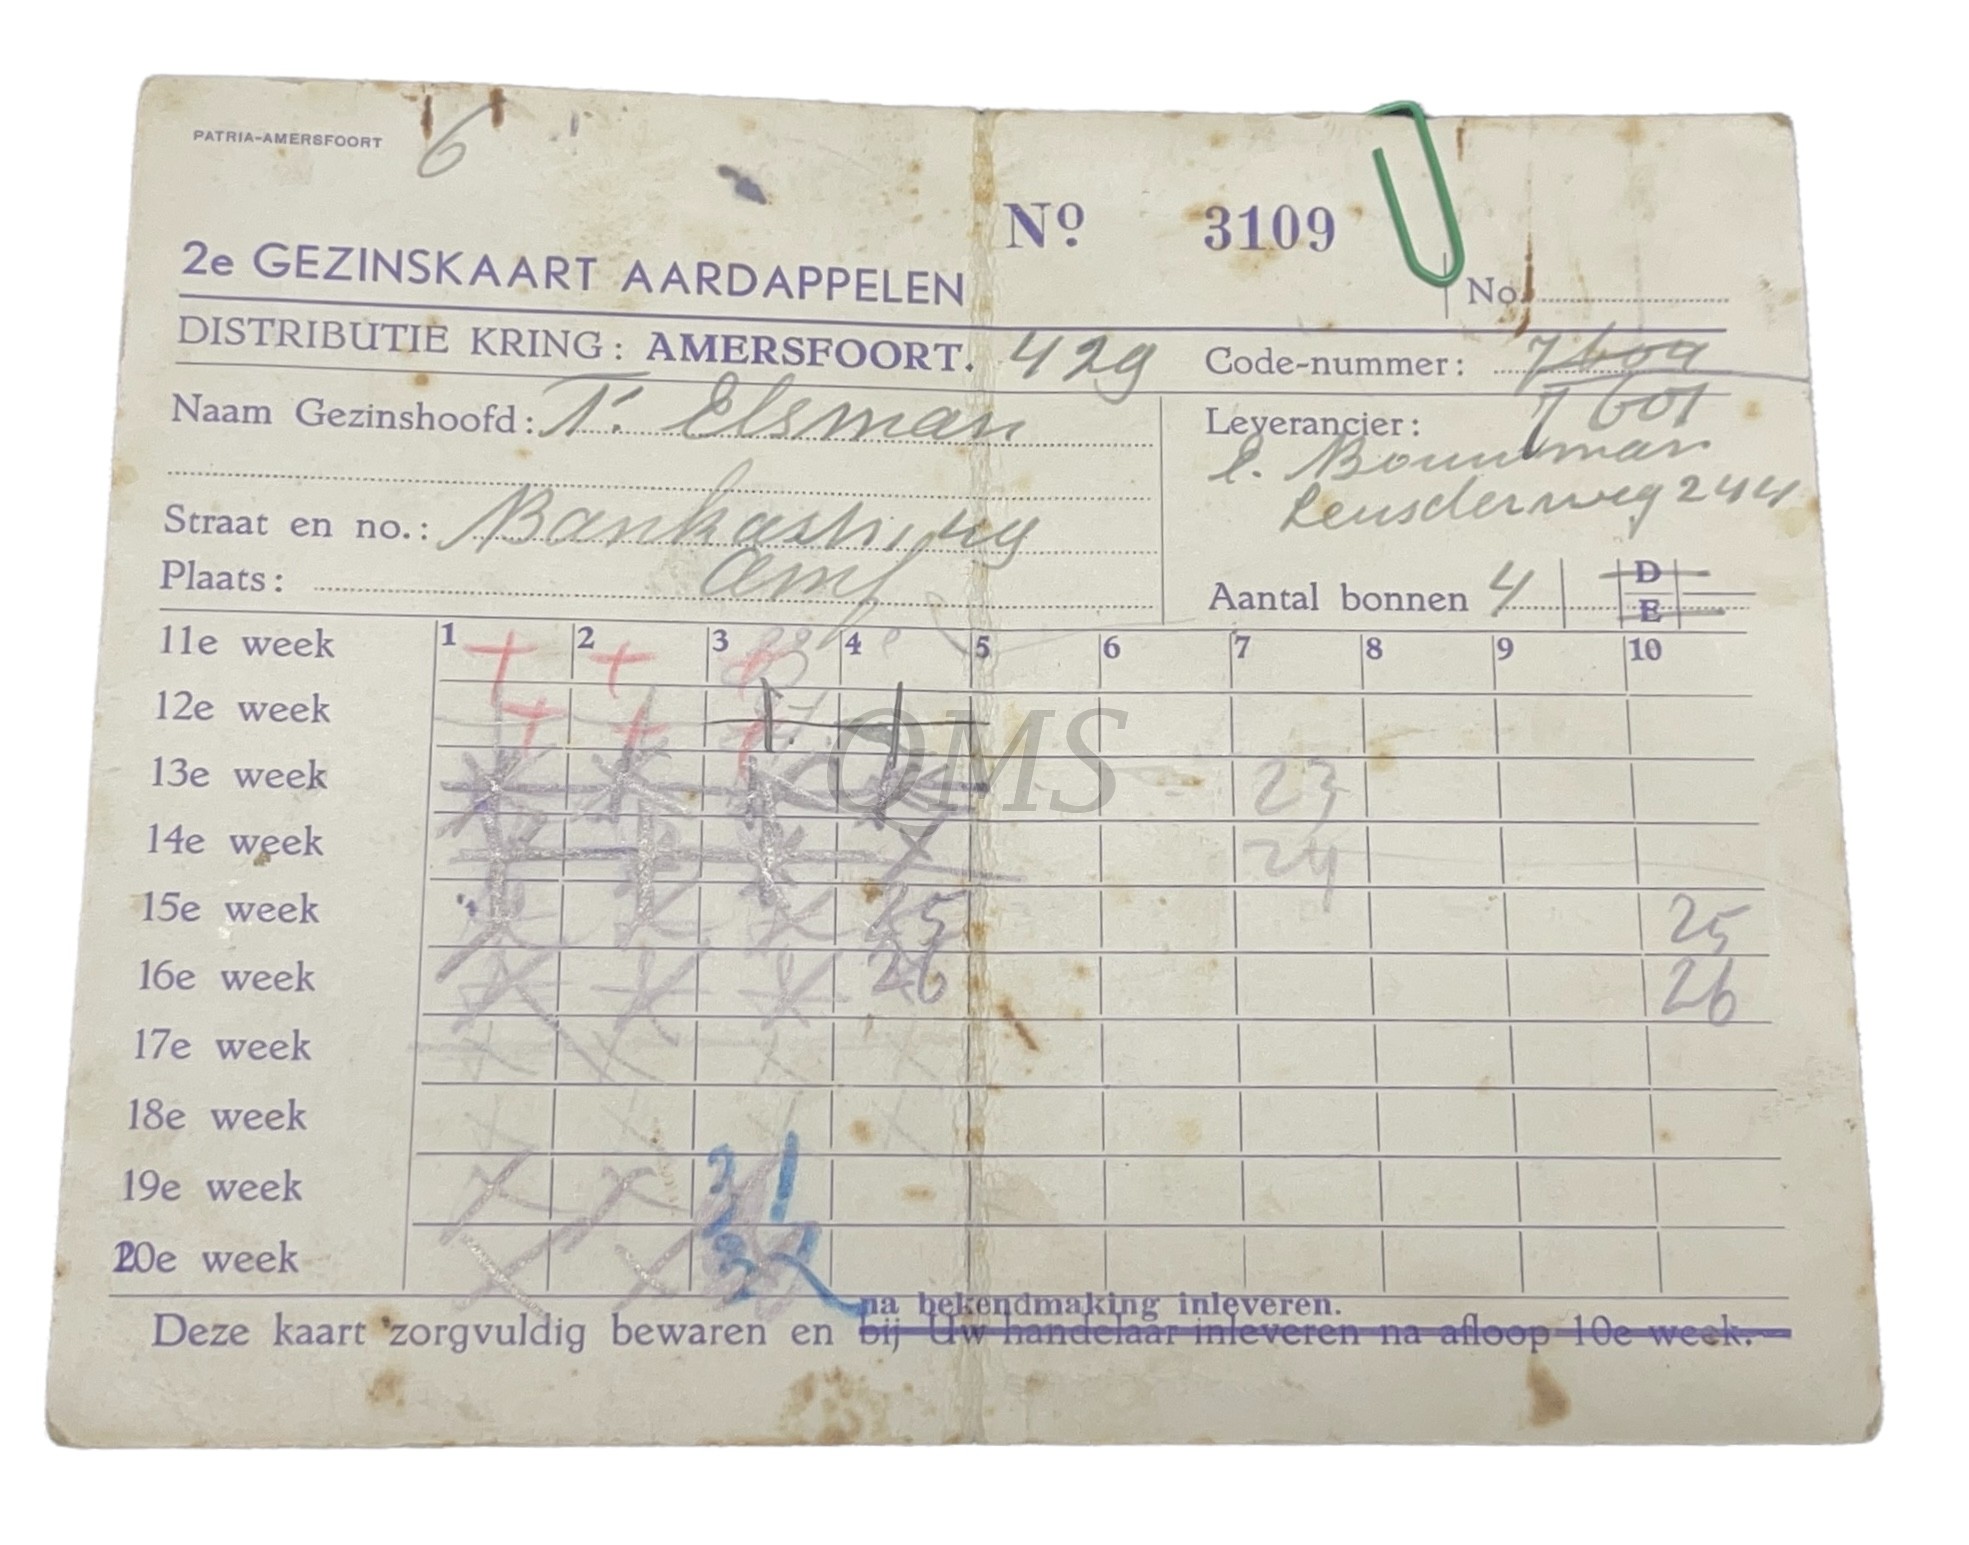 PATRIA-AMERSFOORT 6
Nº 3109
2e GEZINSKAART AARDAPPELEN
No.
DISTRIBUTIE KRING: AMERSFOORT. 429
Code-nummer: 7609
7601
Naam Gezinshoofd: T. Elsman
Leverancier:
Leusderweg 244
Straat en no.:
Plaats: Amf
Aantal bonnen 4 D
E
11e week 1 2 3 4 5 6 7 8 9 10
12e week
QMS
13e week 23
14e week 24
15e week 25 25
16e week 26 26
17e week
18e week
19e week 31
20e week 32
na bekendmaking inleveren.
Deze kaart zorgvuldig bewaren en bij Uw handelaar inleveren na afloop 10e week.